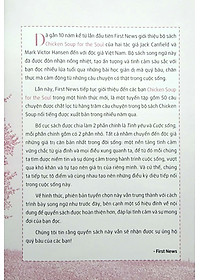 Đã gần 10 năm kể từ lần đầu tiên First News giới thiệu bộ sách
Chicken Soup for the Soul của hai tác giả Jack Canfield và
Mark Victor Hansen đến với độc giả Việt Nam. Bộ sách song ngữ này
đã được đón nhận nồng nhiệt, tạo ấn tượng và tình cảm sâu sắc với
bạn đọc nhiều lứa tuổi qua những bài học giản dị mà quý báu, chân
thực mà cảm động từ những câu chuyện có thật trong cuộc sống.
Lần này, First News tiếp tục giới thiệu đến các bạn Chicken Soup
for the Soul trong một hình thức mới, là một tuyển tập gồm 50 câu
chuyện được chắt lọc từ hàng trăm câu chuyện trong bộ sách Chicken
Soup nổi tiếng được xuất bản trong nhiều năm qua.
Bố cục sách được chia làm 2 phần chính là Tình yêu và Cuộc sống,
mỗi phần chính gồm có 2 phần nhỏ. Tất cả nhằm chuyển đến độc giả
những giá trị căn bản nhất trong đời sống: một nền tảng tình cảm
vững chắc từ gia đình và mọi điều xung quanh ta, để từ đó mỗi chúng
ta tìm thêm được niềm tin và sự can đảm trong hành trình cuộc sống, vượt
qua khó khăn và tự tạo nên giá trị của riêng mình. Và cứ thế, chúng
ta tiếp tục tô điểm và cùng nhau tạo nên những điều kỳ diệu tiếp nối
trong cuộc sống này.
Về hình thức, phiên bản tuyển chọn này vẫn trung thành với cách
trình bày song ngữ như trước đây, bên cạnh một số hiệu đính về nội
dung để quyển sách được hoàn thiện hơn, đáp lại tình cảm và sự mong
đợi của bạn đọc.
Chúng tôi tin rằng quyển sách này vẫn sẽ nhận được sự ủng hộ
quý báu của các bạn!
- First News